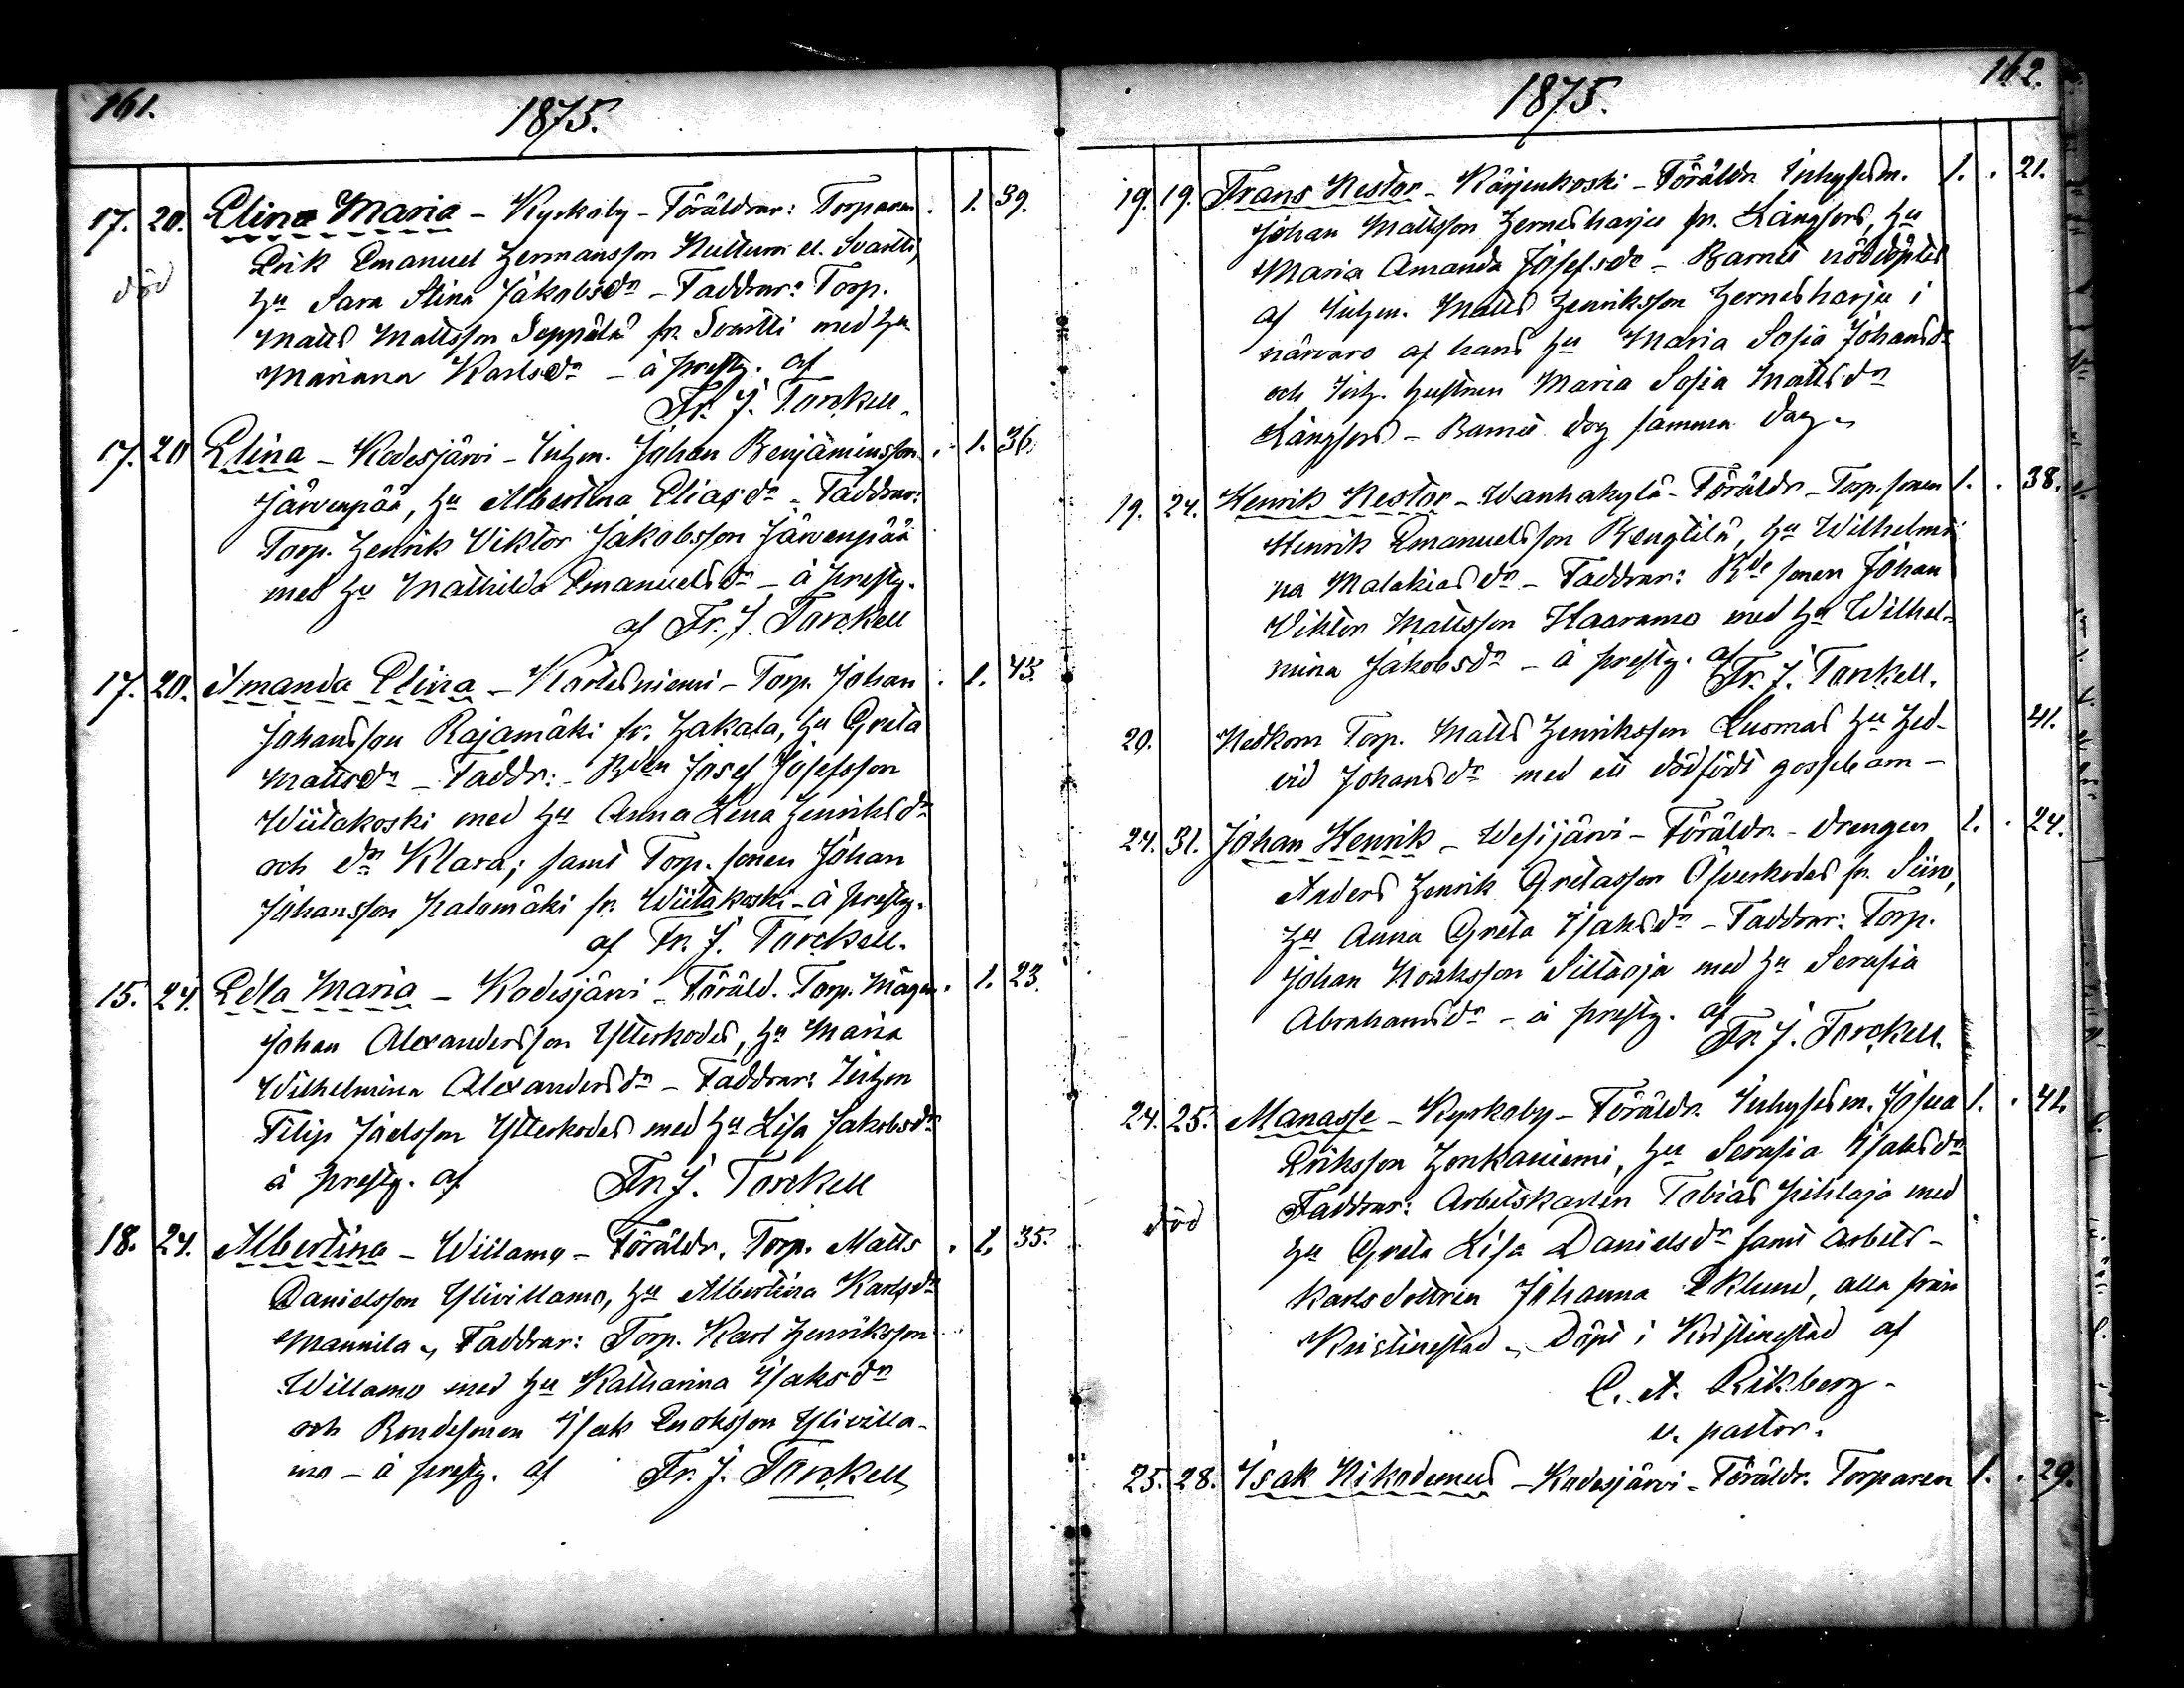 161.
1875.
17. 20. Elina Maria – Kyrkoby – Föräldrar: Torparen . 1. 39.
Erik Emanuel Hermansson Nuttuni el. Svartti,
död
hu Sara Stina Jakobsdr – Faddrar: Torp.
Matts Mattsson Seppälä fr. Svartti med hu
Mariana Karlsdr – å prestg. af
Fr. J. Torckell.
17. 20 Elina – Kodesjärvi – Inhm. Johan Benjaminsson . 1. 36.
Järvenpää, hu Albertina Eliasdr – Faddrar:
Torp. Henrik Viktor Jakobsson Järvenpää
med hu Mathilda Emanuelsdr – å prestg.
af Fr. J. Torckell
17. 20. Amanda Elina – Kortesniemi – Torp. Johan . 1. 43.
Johansson Rajamäki fr. Hakala, hu Greta
Mattsdr – Faddr: – Bden Josef Josefsson
Wiitakoski med hu Anna Lena Henriksdr
och dr Klara; samt Torp. sonen Johan
Johansson Halamäki fr. Wiitakoski – å prestg.
af Fr. J. Torckell.
15. 24. Edla Maria – Kodesjärvi – Föräld. Torp. Mågen . 1. 23.
Johan Alexandersson Ytterkodes, hu Maria
Wilhelmina Alexandersdr – Faddrar: Inhm
Filip Joelsson Ytterkodes med hu Lisa Jakobsdr
å prestg. af Fr. J. Torckell
18. 24. Albertina – Willamo – Föräldr. Torp. Matts . 1. 35.
Danielsson Ylivillamo, hu Albertina Karlsdr
Mannila – Faddrar: Torp. Karl Henriksson
Willamo med hu Katharina Isaksdr
och Bondesonen Isak Enoksson Ylivilla-
mo – å prestg. af Fr. J. Torckell
162.
1875.
19. 19. Frans Nestor – Kärjenkoski – Föräldr. Inhysesm. 1. . 21.
Johan Mattsson Hernesharju fr. Långfors, hu
Maria Amanda Josefsdr – Barnet nöddöptes
af Inhm. Matts Henriksson Hernesharju i
närvaro af hans hu Maria Sofia Johansdr
och Inh. hustrun Maria Sofia Mattsdr
Långfors – Barnet dog samma dag –
19. 24. Henrik Nestor – Wanhakylä – Föräldr – Torp. sonen 1. . 38.
Henrik Emanuelsson Bengtilä, hu Wilhelmi-
na Malakiasdr – Faddrar: Bde sonen Johan
Viktor Mattsson Haaramo med hu Wilhel-
mina Jakobsdr – å prestg. af
Fr. J. Torckell.
20. Nedkom Torp. Matts Henriksson Luomas hu Hed- 41.
vid Johansdr med ett dödfödt gossebarn –
24. 31. Johan Henrik – Wesijärvi – Föräldr. – drengen 1. . 24.
Anders Henrik Gretasson Öfverkodes fr. Siiro,
hu Anna Greta Isaksdr – Faddrar: Torp.
Johan Noaksson Siltaoja med hu Serafia
Abrahamsdr – å prestg. af
Fr. J. Torckell.
24. 25. Manasse – Kyrkoby – Föräldr. Inhysesm. Josua 1. . 42.
Eriksson Honkaniemi, hu Serafia Isaksdr
Faddrar: Arbetskarlen Tobias Pihlaja med
död
hu Greta Lisa Danielsdr samt arbets-
karlsdottren Johanna Eklund, alla från
Kristinestad – Döpt i Kristinestad af
C. A. Rikberg –
v. pastor.
25. 28. Isak Nikodemus – Kodesjärvi – Föräldr. Torparen 1. . 29.